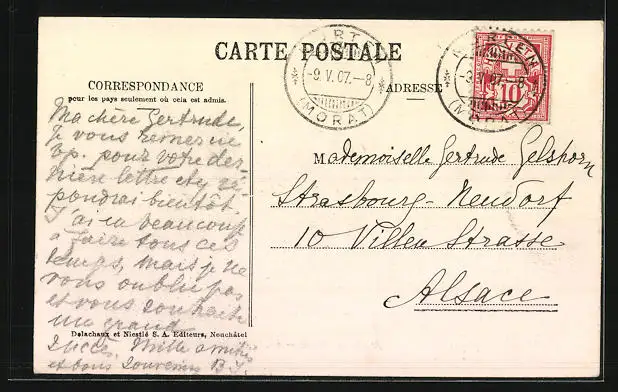 CARTE POSTALE
-9.V.07.-8
(MORAT)
-9.V.07.-8
10
CORRESPONDANCE
pour les pays seulement où cela est admis.
ADRESSE
Ma chère Gertrude,
Je vous remercie
bp. pour votre der-
nière lettre et y ré-
pondrai bientôt.
J'ai eu beaucoup
à faire tous ces
temps, mais je ne
vous oublie pas
et vous souhaite
un grand
succès. Mille amitiés
et bons souvenirs B.
Mademoiselle Gertrude Gelshorn
Strasbourg-Neudorf
10 Villen Strasse
Alsace
Delachaux et Niestlé S. A. Editeurs, Neuchâtel